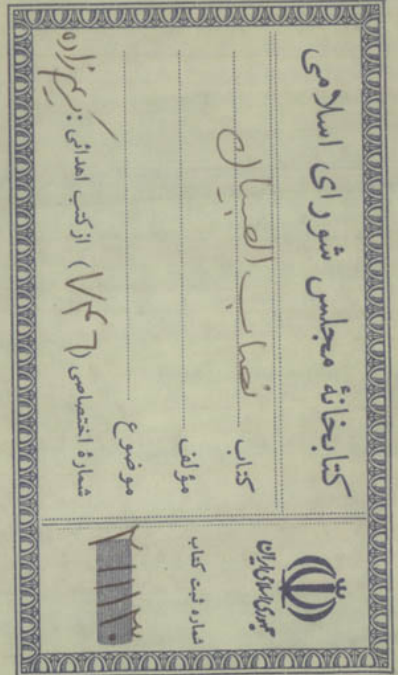 کتابخانهٔ مجلس شورای اسلامی
کتاب نصاب الصبیان
مؤلف
موضوع
شمارهٔ اختصاصی (۷۴۶) از کتب اهدائی :
جمهوری اسلامی ایران
شماره ثبت کتاب